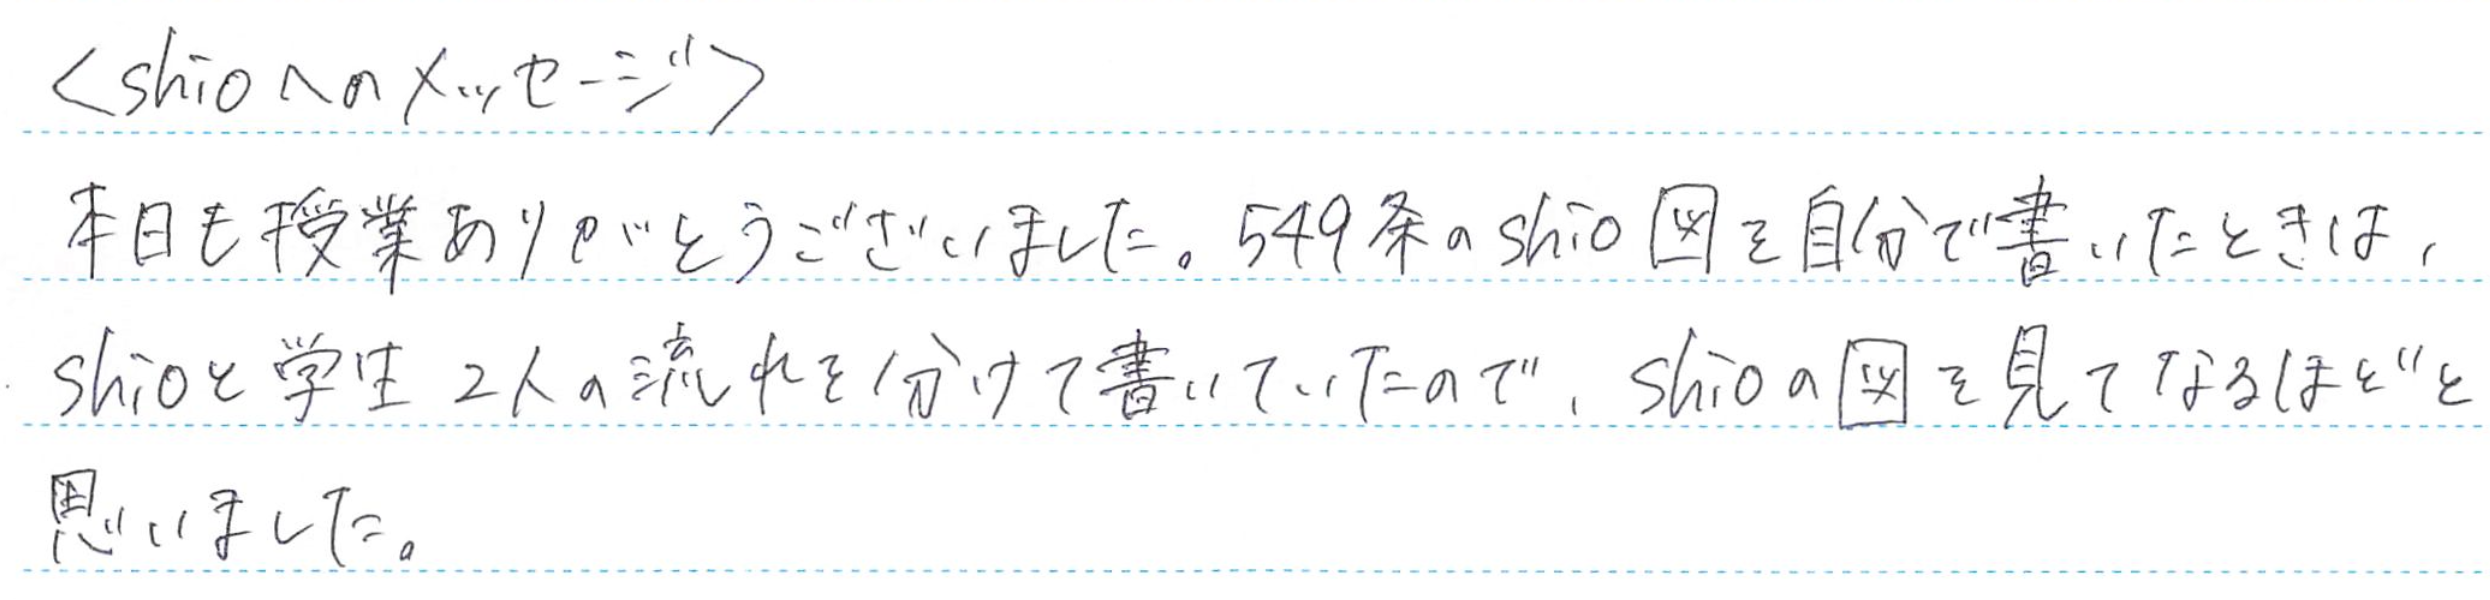 <shioへのメッセージ>
本日も授業ありがとうございました。549条のshio図を自分で書いたときは,
shioと学生2人の流れを分けて書いていたので,shioの図を見てなるほどと
思いました。